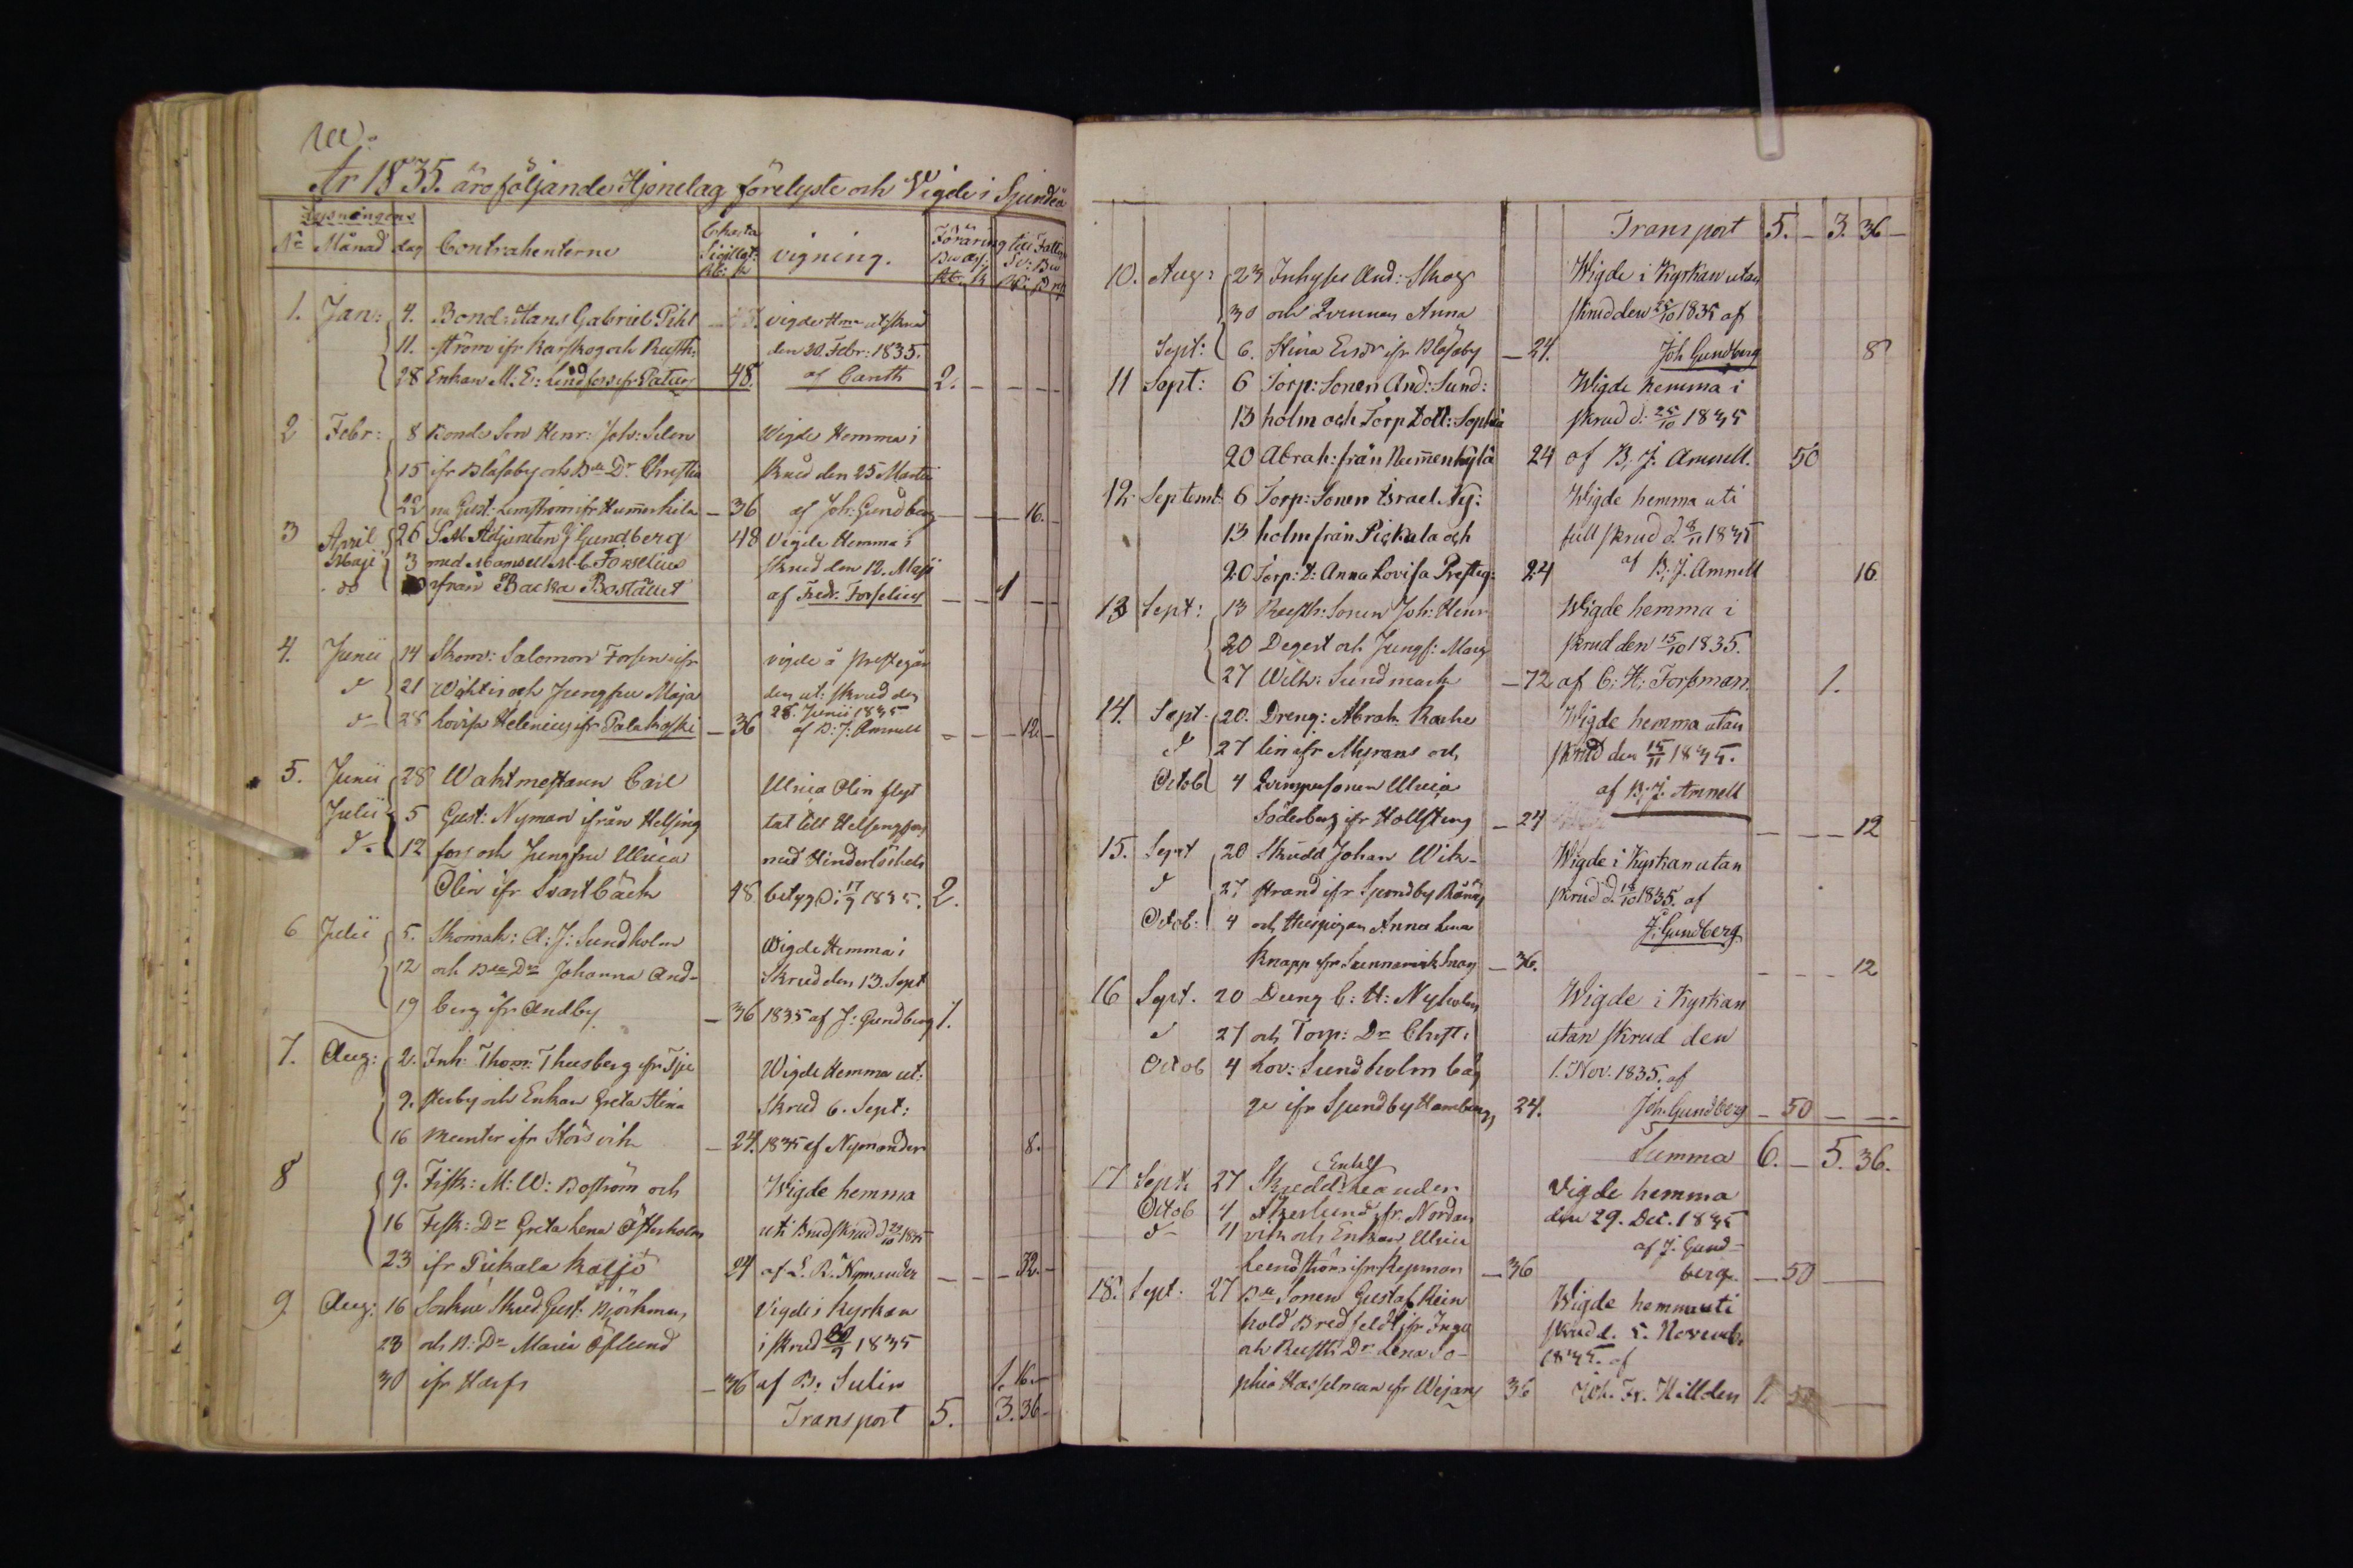 År 1835. äro följande Hjonelag förelyste och Vigde i Sjundeå
Lysningens
No Månad dag Contrahenterne Charta Sigillat: vigning. Föräring till Fattig
1. Jan: 4. Bond: Hans Gabriel Pihl vigde Hma ut skrud
11. ström ifr Karskog och Rusth: den 20. Febr: 1835.
28 Enkan M. E: Lindfors ifr 48. af Canth 2. - - - -
2 Febr: 8 Bonde Son Henr: Joh: Selen Vigde Hemma i
15 ifr Blåsaby och Bde Dr Christia Skrud den 25 Martii
22 na Gust: ifr - 36 af Joh: Gundberg - - - 16. -
3 April 26 S.M. Adjuncten J Gundberg 48 Vigde Hemma i
Maji 3 med Mamsell M. C. Forselius Skrud den 12. Maji
do ifrån Backa Bostället af Fredr. Forselius - - 1 - -
4. Junii 14 Skom: Salomon Forsen ifr vigde å prestegår
d 21 och Jungfru Maja den ut: skrud den
d 28 Lovisa Helenius ifr Palakoski - 36 28. Junii 1835 af B: J: Amnell - - - 12. -
5. Junii 28 Waktmestaren Carl Ulrica Olin flyt
Julii 5 Gust: Nyman ifrån Helsing tat till Helsingfors
d- 12 fors och Jungfru Ulrica med Hinderlöshets
Olin ifr Svartbäck 48 betyg d: 17/9 1835. 2.
6 Julii 5. Skomak: A: J: Sundholm Wigde Hemma i
12 och Bde Dr Johanna And- Skrud den 13. Sept
19 berg ifr Andby - 36 1835 af J: Gundberg 1.
7. Aug: 2. Inh: Thom: Thusberg ifr Tje Wigde Hemma ut:
9. sterby och Enkan Greta Stina Skrud 6. Sept:
16 Munter ifr Störsvik - 24. 1835 af Nymander 8. -
8 9. Fisk: M: W: Boström och Wigde hemma
16 Fisk: Dr Greta Lena Österholm uti Brudskrud d 1835
23 ifr Pickala 24 af L. R. Nymander - - - 32. -
9 Aug: 16 Sockne Skrud: Gust: Björkman Vigde i kyrkan
23 och B: Dr Maria Öslund i skrud 1835
30 ifr - 36 af B: Sulin 1. 16. -
Transport 5. 3. 36 -
Transport 5. - 3. 36 -
10. Aug: 23 Inhyses And: Skog Wigde i Kyrkan utan
30 och Qvinnan Anna skrud den 25/10 1835 af
Sept: 6. Stina Ersdr ifr Blåsaby - 24. Joh Gundberg 8
11 Sept: 6 Torp: Sonen And: Sund: Wigde hemma i
13 holm och Torp Dott: Sophia skrud d: 25/10 1835
20 Abrah: från Nummenkylä 24 af B, J. Amnell. 50
12. Septemb: 6 Torp: Sonen Israel Ny: Wigde hemma uti
13 holm från Pickala och full skrud d. 8/11 1835
20 Torp: D: Anna Lovisa Presteg: 24 af B, J. Amnell 16
13 Sept: 13 Rusth: Sonen Joh: Henr Wigde hemma i
20 Degert och Jungf: Marg skrud den 15/10 1835.
27 Wilh: Sundmark - 72 af C: H: Forsman. 1.
14. Sept- 20. Dreng: Abrah Wigde hemma utan
d 27 ifr Myrans och skrud den 15/11 1835.
Octob 4 Qvinspersonen Ulrica af B, J. Amnell
Söderberg ifr - 24 - - - 12
15. Sept 20 Skrädd Johan Wik- Wigde i Kyrkan utan
d 27 strand ifr Sjundby skrud d. 18/10 1835. af
Octob: 4 och Anna Lena J. Gundberg
Knapp ifr - 36. - - - 12
16 Sept. 20 Dreng C: H: Nyholm Wigde i Kyrkan
d 27 och Torp: Dr Christ: utan skrud den
Octob 4 Lov: Sundholm båg 1. Nov. 1835. af
ge ifr Sjundby 24. Joh. Gundberg - 50 - - -
Summa 6. - 5. 36.
17 Sept: 27 Skrädd: Enkl Leander Vigde hemma
Octob 4 Åkerlund ifr. Nordan den 29. Dec. 1835
d- 11 vik och Enkan Ulrica af J. Gund-
Lindström ifr - 36 berg. - 50 -
18. Sept: 27 Bde Sonen Gustaf Rein Wigde hemma uti
hold Bredfeldt ifr Inga skrud d. 5. Novemb.
och Rusth: Dr Lena So- 1835. af
phia Hasselman ifr Wejans 36 Joh. Fr. Hillden 1. 50